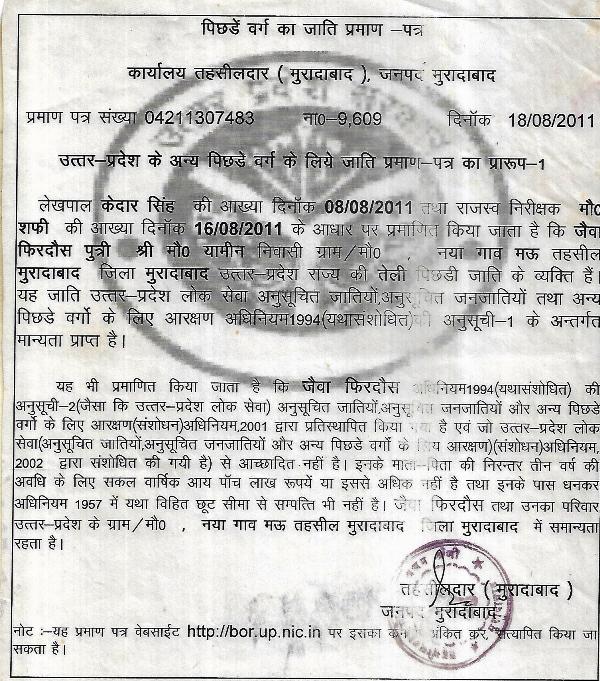 पिछडें वर्ग का जाति प्रमाण –पत्र
कार्यालय तहसीलदार ( मुरादाबाद ), जनपद मुरादाबाद
प्रमाण पत्र संख्या 04211307483 ना0–9,609 दिनॉक 18/08/2011
उत्तर–प्रदेश के अन्य पिछडे वर्ग के लिये जाति प्रमाण–पत्र का प्रारूप–1
लेखपाल केदार सिंह की आख्या दिनॉक 08/08/2011 तथा राजस्व निरीक्षक मौ0
शफी की आख्या दिनॉक 16/08/2011 के आधार पर प्रमाणित किया जाता है कि जैवा
फिरदौस पुत्री श्री मौ0 यामीन निवासी ग्राम/मौ0 , नया गाव मऊ तहसील
मुरादाबाद जिला मुरादाबाद उत्तर–प्रदेश राज्य की तेली पिछडी जाति के व्यक्ति हैं।
यह जाति उत्तर–प्रदेश लोक सेवा अनुसूचित जातियों,अनुसूचित जनजातियों तथा अन्य
पिछडे वर्गो के लिए आरक्षण अधिनियम1994(यथासंशोधित)की अनुसूची–1 के अन्तर्गत
मान्यता प्राप्त है।
यह भी प्रमाणित किया जाता है कि जैवा फिरदौस अधिनियम1994(यथासंशोधित) की
अनुसूची–2(जैसा कि उत्तर–प्रदेश लोक सेवा) अनुसूचित जातियों,अनुसूचित जनजातियों और अन्य पिछडे
वर्गो के लिए आरक्षण(संशोधन)अधिनियम,2001 द्वारा प्रतिस्थापित किया गया है एवं जो उत्तर–प्रदेश लोक
सेवा(अनुसूचित जातियों,अनुसूचित जनजातियों और अन्य पिछडे वर्गो के लिय आरक्षण)(संशोधन)अधिनियम,
2002 द्वारा संशोधित की गयी है) से आच्छादित नहीं है। इनके माता–पिता की निरन्तर तीन वर्ष की
अवधि के लिए सकल वार्षिक आय पॉच लाख रूपयें या इससे अधिक नहीं है तथा इनके पास धनकर
अधिनियम 1957 में यथा विहित छूट सीमा से सम्पत्ति भी नहीं है। जैवा फिरदौस तथा उनका परिवार
उत्तर–प्रदेश के ग्राम/मौ0 , नया गाव मऊ तहसील मुरादाबाद जिला मुरादाबाद में सामान्यता
रहता है।
तहसीलदार ( मुरादाबाद )
जनपद मुरादाबाद
नोट :–यह प्रमाण पत्र वेबसाईट http://bor.up.nic.in पर इसका अंकित कर, सत्यापित किया जा
सकता है।